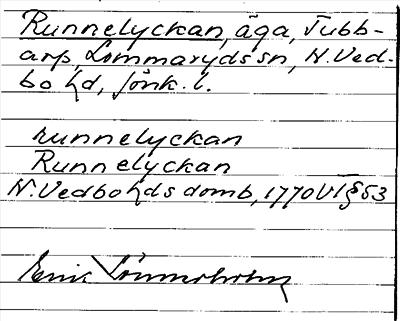 Runnelyckan, äga, Tubb-
arp, Lommaryds sn, N. Ved-
bo hd, Jönk. l.
runnelyckan
Runnelyckan
N. Vedbo hds domb, 1770 VI § 53